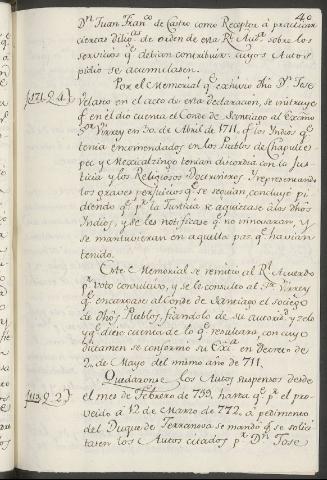 40
Dn Juan Franco de Castro como Receptor à practicar
ciertas diligas de orden de esta Rl Auda sobre los
servicios qe debian contribuir: cuyos Autos
pidio se acumulasen.
Por el Memorial qe exhivio dho Dn Jose
Velano en el acto de esta declaracion, se instruye
qe en el dio cuenta el Conde de Santiago al Excmo
Sor Virrey en 30 de Abril de 1711. qe los Indios qe
tenia encomendados en los Pueblos de Chapultepec
pec y Mexicalzingo tenian discordia con la Jus-
ticia y los Religiosos Doctrineros; y representando
los graves perjuicios qe se seguian, concluyó pi-
diendo qe pr la Justicia se aquietase à los dhos
Indios, y se les notificase qe no innovaran, y
se mantuvieran en aquella paz qe havian
tenido.
Este Memorial se remitio al Rl Acuerdo
pr voto consultivo, y se le consulto al Sor Virrey
qe encargase al Conde de Santiago el sociego
de dhos Pueblos, fiandolo de su autoridd y zelo
y qe diese cuenta de lo qe resultara, con cuyo
dictamen se conformò su Exa en Decreto de
20 de Mayo del mismo año de 711.
Quedaronse los Autos suspensos desde
el mes de Febrero de 759, hasta qe pr el pro-
veido à 12 de Marzo de 772. à pedimento
del Duque de Terranova se mandó qe se solici-
tasen los Autos citados pr Dn Jose